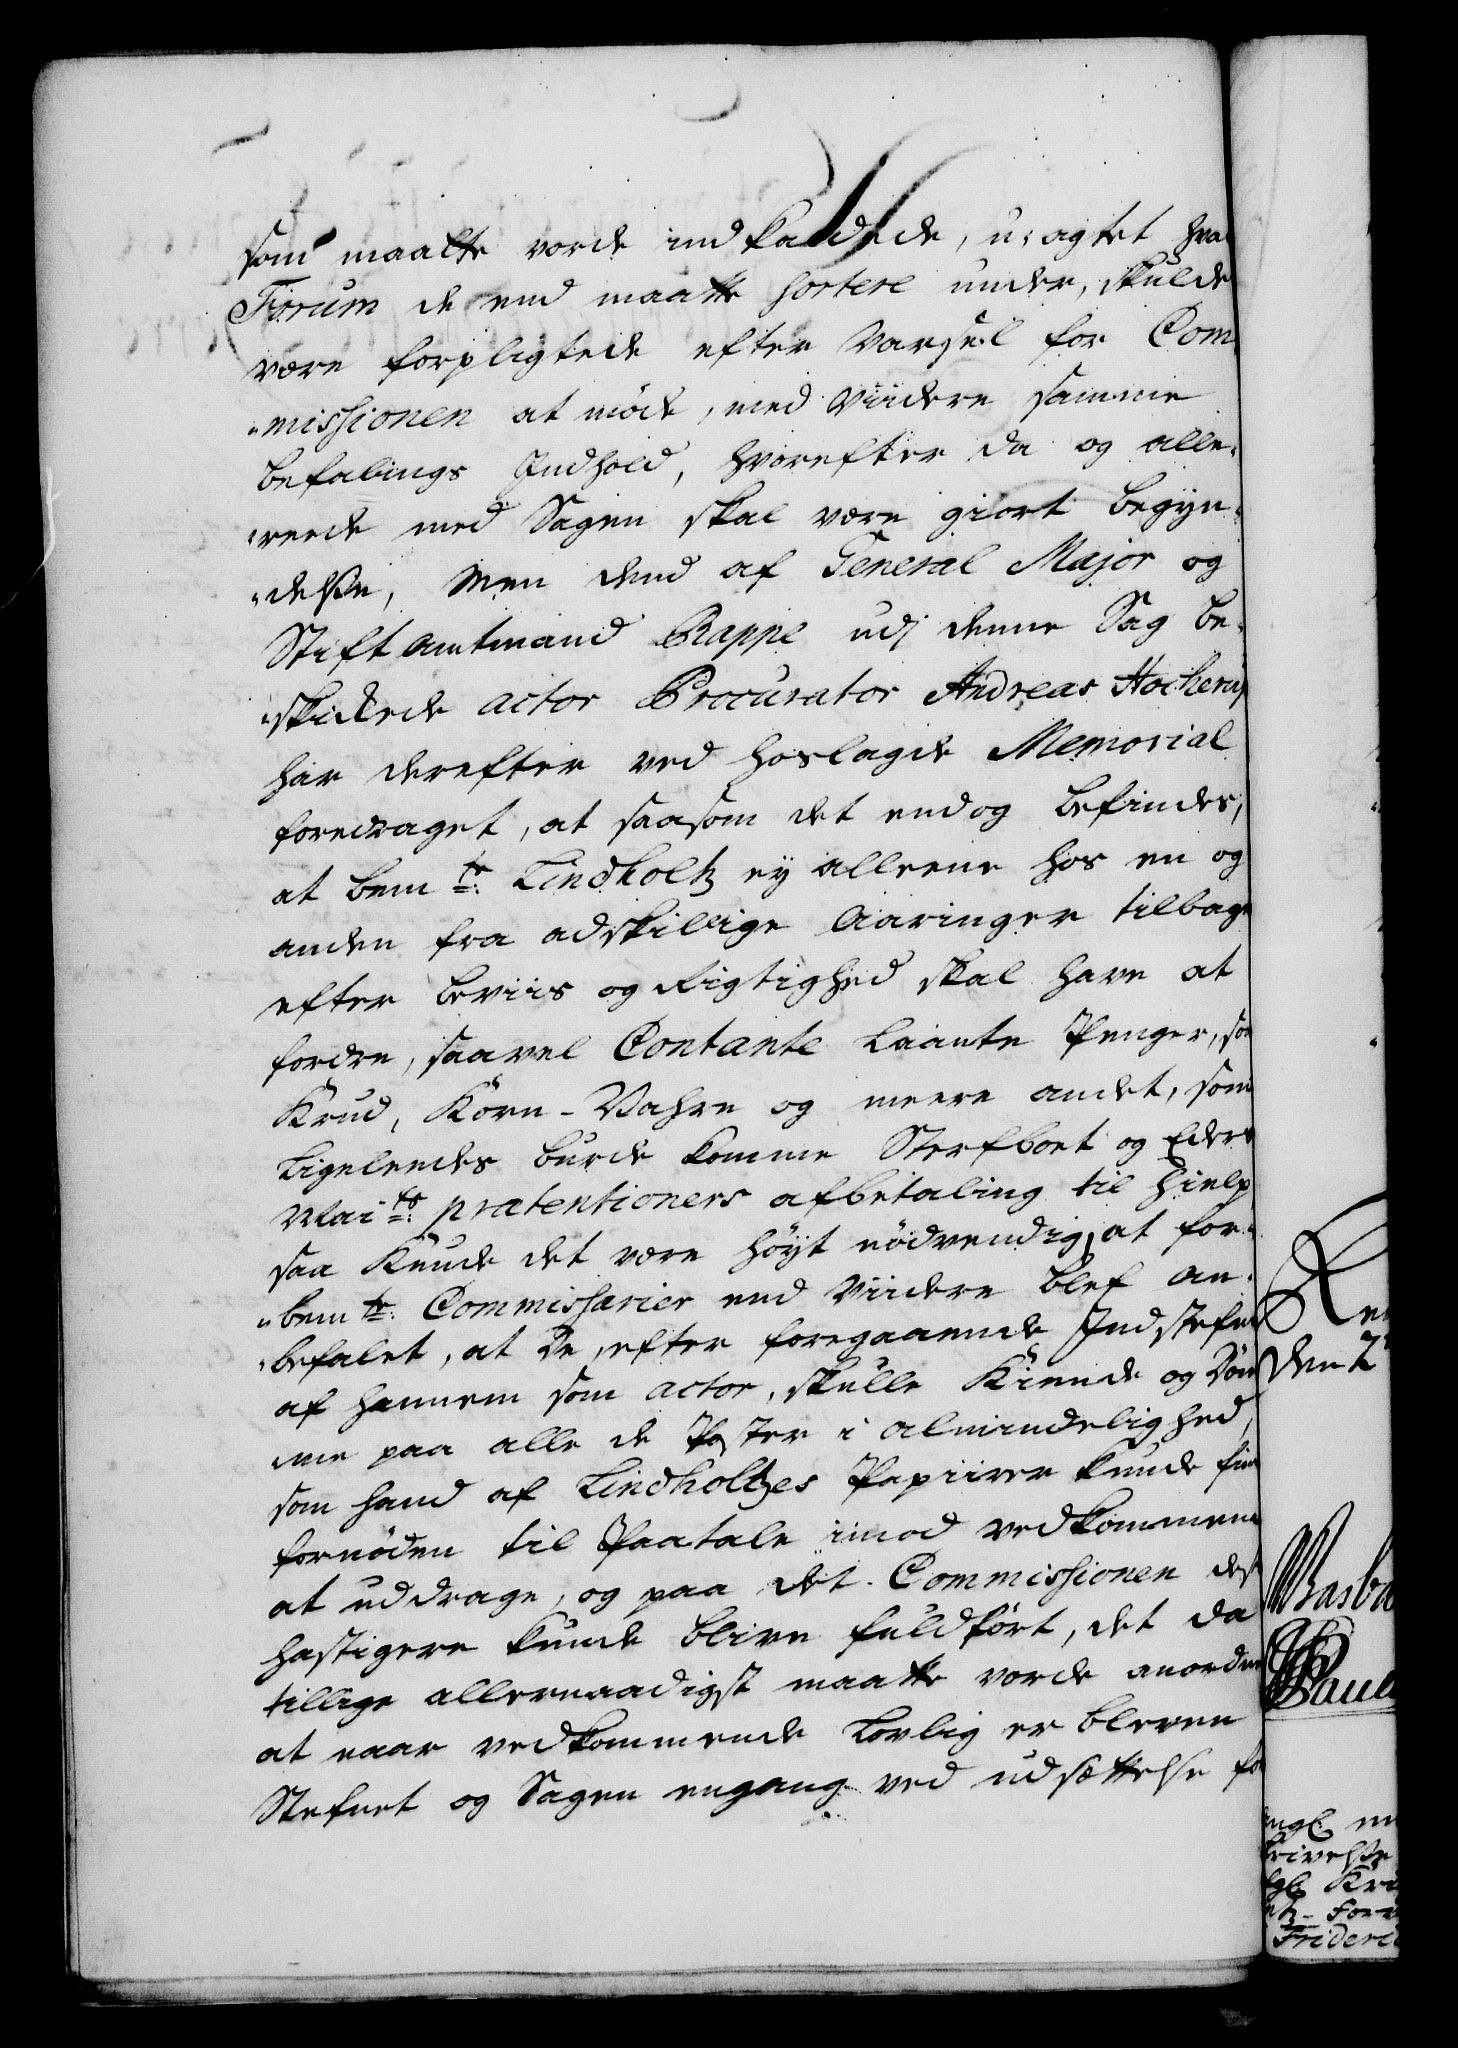 som maatte vorde indkaldede, u-agtet hva
Forum de end maatte sortere under, skulde
være forpligtede efter Varsel for Com-
missionen at møde, med viidere samme
befalings Indhold, hvorefter da og alle-
reede med Sagen skal være giort begyn-
delse, Men dend af General Major og
Stiftamtmand Rappe udj denne Sag be-
skikkede actor Procurator Andreas Hocherup
har derefter ved hoslagde Memorial
foredraget, at saasom det endog befindes,
at bem.te Lindholtz ey alleene hos en og
anden fra adskillige Aaringer tilbage
efter beviis og Rigtighed skal have at
fordre, saavel Contante laante Penger, som
Krud, Korn-Vahre og meere andet, som
ligeleedes burde komme Sterfboet og Eders
Mai.ts prætentioners afbetaling til hielp
saa kunde det være høyt nødvendig, at for-
bem.te Commissarier end viidere blef an-
befalet, at De, efter foregaaende Indstefni
af hannem som actor, skulle Kiende og Døm
me paa alle de Poster i almindelighed,
som hand af Lindholtzes Papiirer kunde fin
fornøden til Paatale imod vedkommen
at uddrage, og paa det Commissionen des
hastigere kunde blive fuldført, det da
tillige allernaadigst maatte vorde anordne
at naar vedkommende lovlig er bleven
Stefnet og Sagen engang ved udsættelse fo
den 2
Frideric